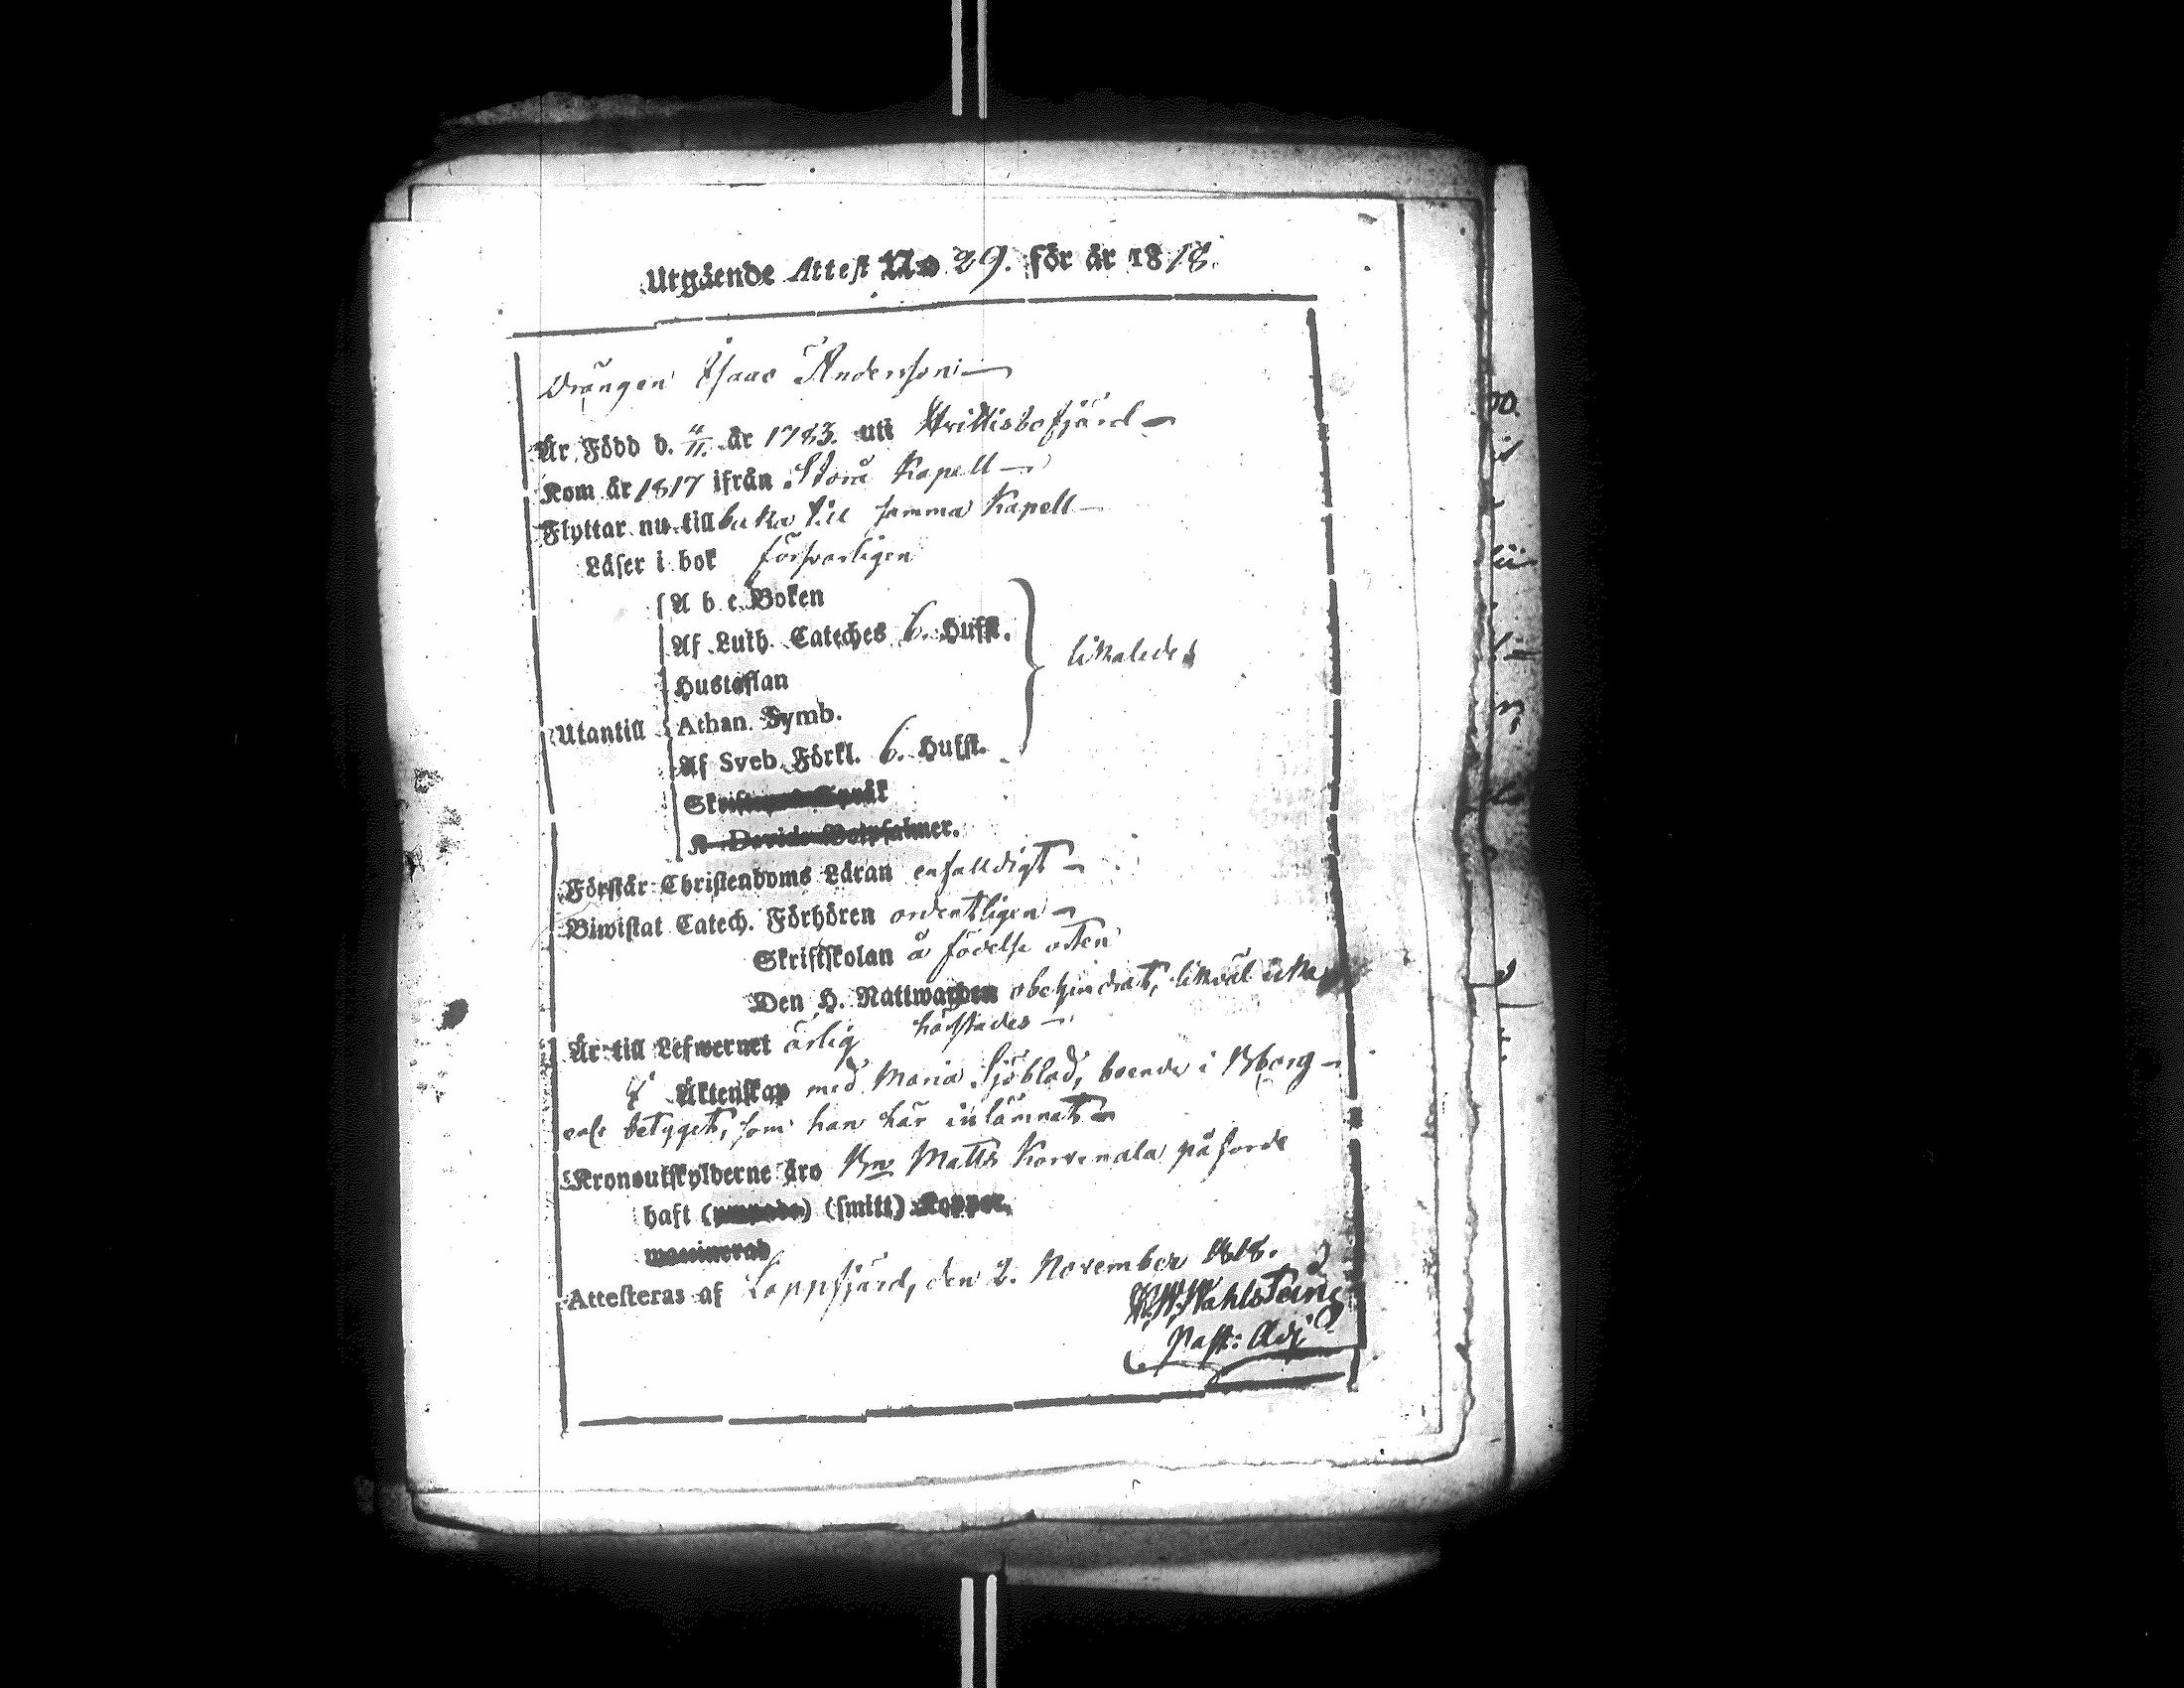 Utgående Attest No 29. för år 1818.
Drängen Isaac Andersson
Är Född d. 4/11. år 1783. uti Krittisbofjärd
Kom år 1817 ifrån Storå Kapell
Flyttar nu till baka till samma Kapell
Läser i bok försvarligen
A b c Boken
Af Luth. Cateches 6. Hufst.
likaledes
Hustaflan
Utantill Athan. Symb.
Af Sveb. Förkl. 6. Hufst.
Förstår Christendoms Läran enfalldigt
Biwistat Catech. Förhören ordentligen
Skriftskolan å födelse orten
Den H. Nattwarden obehindrat, likväl icke
härstädes
Är till Lefwernet ärlig
Äktenskap med Maria Sjöblad, boende i Åborg
enl. betyget, som han här inlämnat
Kronoutskylderne äro Matts Korvenala påförde
haft (smitt)
Attesteras af Lappfjärd, den 2. November 1818.
Wahlsteing
Past: Adj